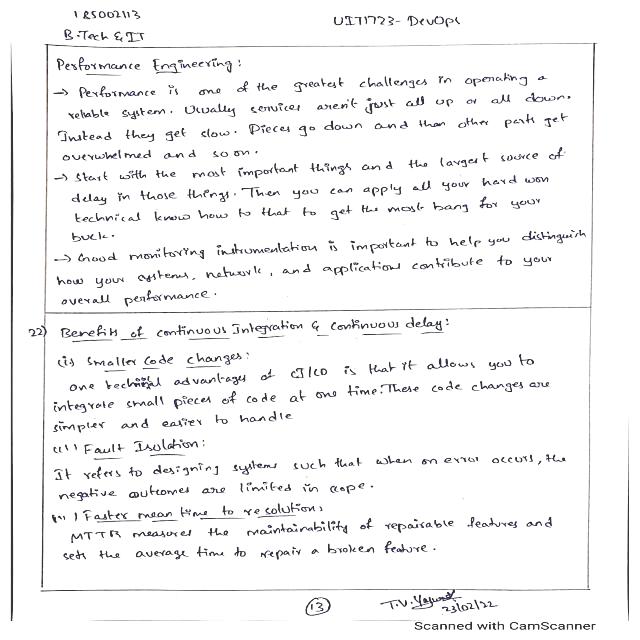 185002113
UIT1723- DevOps
B.Tech & IT
Performance Engineering:
→ Performance is one of the greatest challenges in operating a
reliable system. Usually services aren't just all up or all down.
Instead they get slow. Pieces go down and then other parts get
overwhelmed and so on.
→ Start with the most important things and the largest source of
delay in those things. Then you can apply all your hard won
technical know how to that to get the most bang for your
buck.
→ Good monitoring instrumentation is important to help you distinguish
how your systems, network, and applications contribute to your
overall performance.
22) Benefits of continuous Integration & continuous delay:
(i) Smaller code changes:
one technical advantages of CI/CD is that it allows you to
integrate small pieces of code at one time. These code changes are
simpler and easier to handle
(ii) Fault Isolation:
It refers to designing systems such that when an error occurs, the
negative outcomes are limited in scope.
(iii) Faster mean time to resolution:
MTTR measures the maintainability of repairable features and
sets the average time to repair a broken feature.
13
T.V.
23/02/22
Scanned with CamScanner